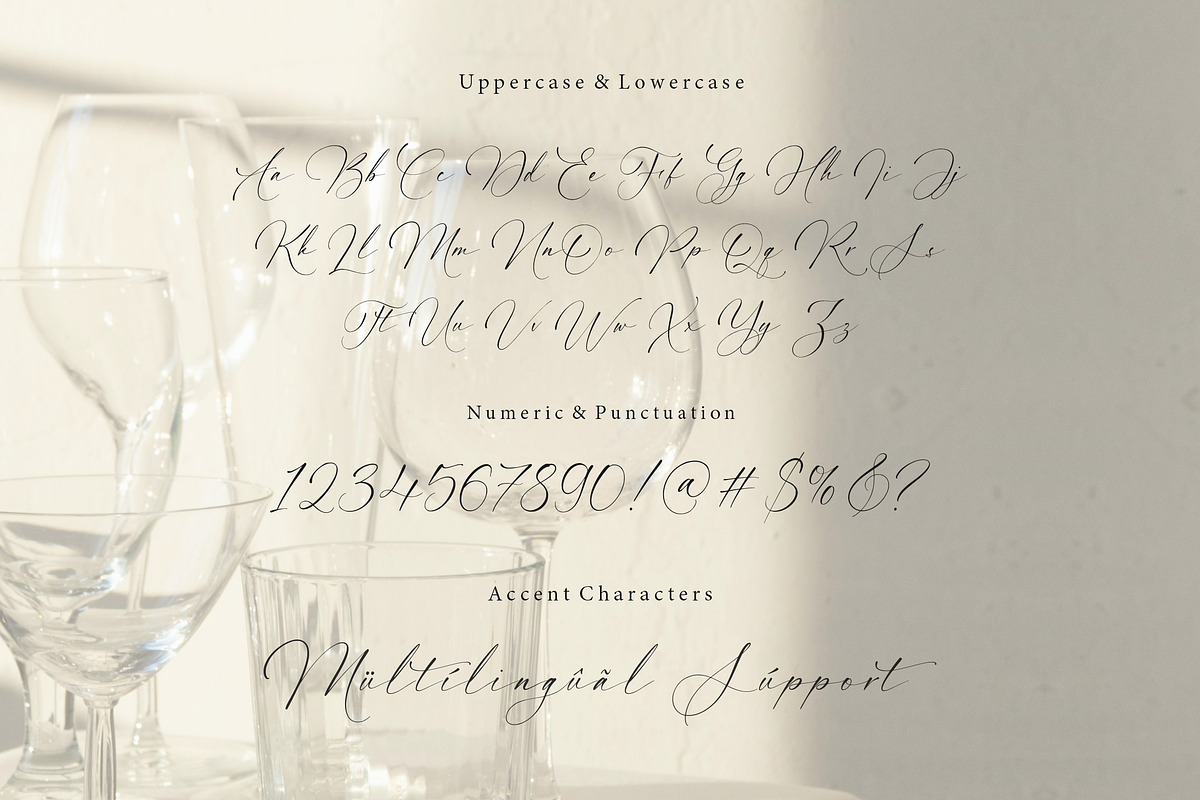 Uppercase & Lowercase
Aa Bb Cc Dd Ee Ff Gg Hh Ii Jj
Kk Ll Mm Nn Oo Pp Qq Rr Ss
Tt Uu Vv Ww Xx Yy Zz
Numeric & Punctuation
1234567890!@#$%&?
Accent Characters
Mültílingûãl Súpport